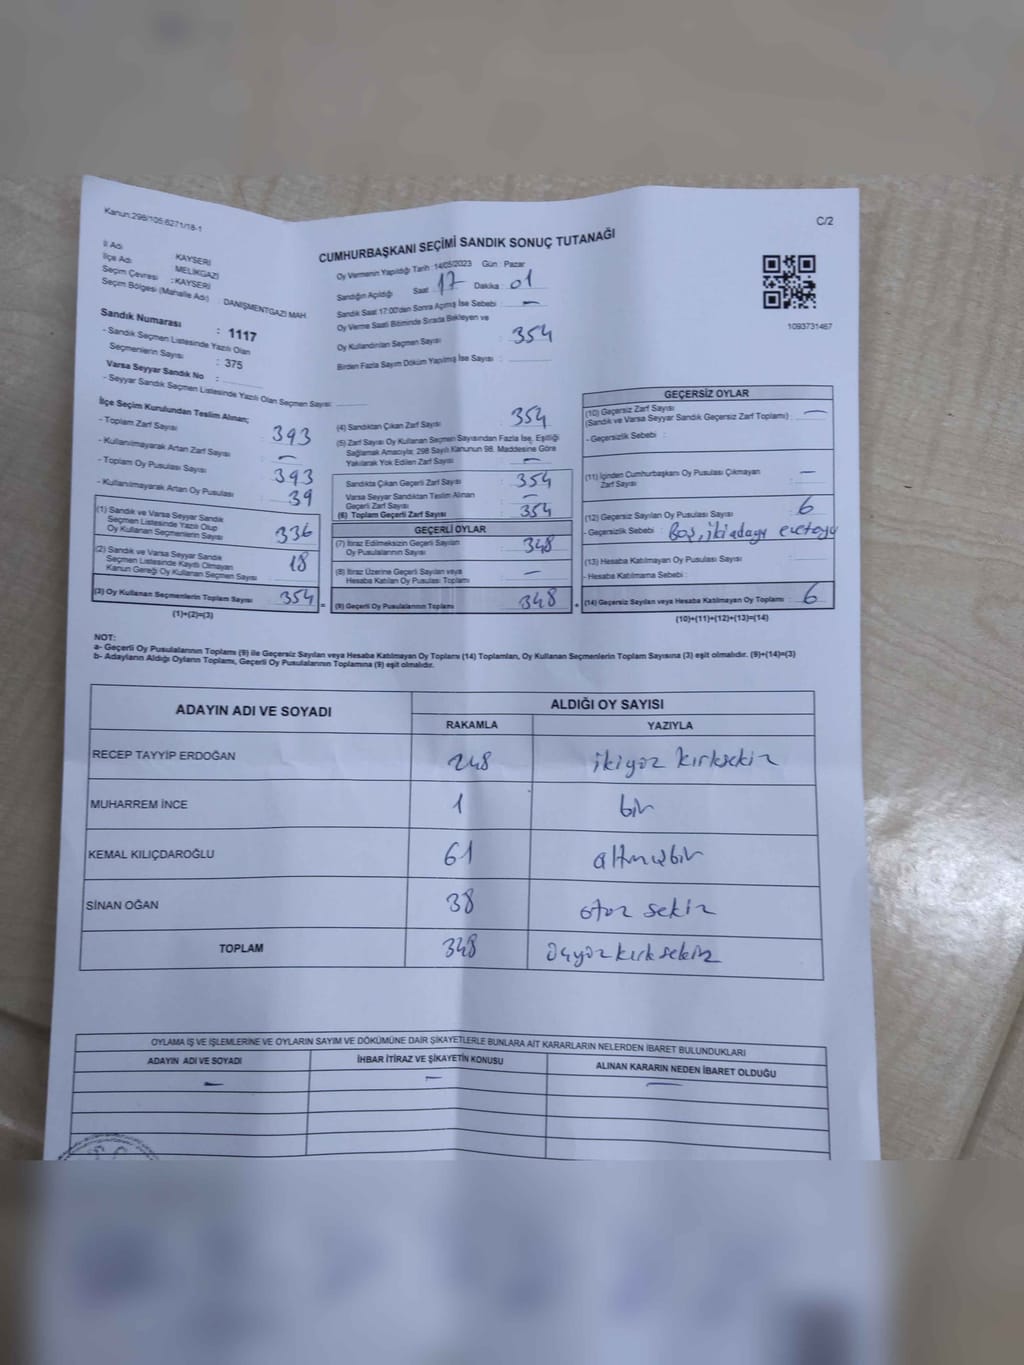 Kanun:298/105:6271/18-1
C/2
CUMHURBAŞKANI SEÇİMİ SANDIK SONUÇ TUTANAĞI
İl Adı KAYSERİ
İlçe Adı MELİKGAZİ
Seçim Çevresi : KAYSERİ
Seçim Bölgesi (Mahalle Adı) : DANIŞMENTGAZI MAH
Sandık Numarası : 1117
- Sandık Seçmen Listesinde Yazılı Olan
Seçmenlerin Sayısı : 375
Varsa Seyyar Sandık No :
- Seyyar Sandık Seçmen Listesinde Yazılı Olan Seçmen Sayısı
Oy Vermenin Yapıldığı Tarih : 14/05/2023 Gün : Pazar
Sandığın Açıldığı Saat 17 Dakika 01
Sandık Saat 17:00'den Sonra Açılmış İse Sebebi : —
Oy Verme Saati Bitiminde Sırada Bekleyen ve
Oy Kullandırılan Seçmen Sayısı : 354
Birden Fazla Sayım Döküm Yapılmış İse Sayısı :
1093731467
İlçe Seçim Kurulundan Teslim Alınan;
- Toplam Zarf Sayısı : 393
- Kullanılmayarak Artan Zarf Sayısı : —
- Toplam Oy Pusulası Sayısı : 393
- Kullanılmayarak Artan Oy Pusulası : 39
(1) Sandık ve Varsa Seyyar Sandık
Seçmen Listesinde Yazılı Olup
Oy Kullanan Seçmenlerin Sayısı : 336
(2) Sandık ve Varsa Seyyar Sandık
Seçmen Listesinde Kayıtlı Olmayan
Kanun Gereği Oy Kullanan Seçmen Sayısı : 18
(3) Oy Kullanan Seçmenlerin Toplam Sayısı : 354
(1)+(2)=(3)
(4) Sandıktan Çıkan Zarf Sayısı : 354
(5) Zarf Sayısı Oy Kullanan Seçmen Sayısından Fazla İse, Eşitliği
Sağlamak Amacıyla; 298 Sayılı Kanunun 98. Maddesine Göre
Yakılarak Yok Edilen Zarf Sayısı : —
Sandıkta Çıkan Geçerli Zarf Sayısı : 354
Varsa Seyyar Sandıktan Teslim Alınan
Geçerli Zarf Sayısı : —
(6) Toplam Geçerli Zarf Sayısı : 354
GEÇERLİ OYLAR
(7) İtiraz Edilmeksizin Geçerli Sayılan
Oy Pusulalarının Sayısı : 348
(8) İtiraz Üzerine Geçerli Sayılan veya
Hesaba Katılan Oy Pusulası Toplamı : —
(9) Geçerli Oy Pusulalarının Toplamı : 348
GEÇERSİZ OYLAR
(10) Geçersiz Zarf Sayısı
(Sandık ve Varsa Seyyar Sandık Geçersiz Zarf Toplamı) : —
- Geçersizlik Sebebi :
(11) İçinden Cumhurbaşkanı Oy Pusulası Çıkmayan
Zarf Sayısı : —
(12) Geçersiz Sayılan Oy Pusulası Sayısı : 6
- Geçersizlik Sebebi : Boş, iki adaya
(13) Hesaba Katılmayan Oy Pusulası Sayısı :
- Hesaba Katılmama Sebebi :
(14) Geçersiz Sayılan veya Hesaba Katılmayan Oy Toplamı : 6
(10)+(11)+(12)+(13)=(14)
NOT:
a- Geçerli Oy Pusulalarının Toplamı (9) ile Geçersiz Sayılan veya Hesaba Katılmayan Oy Toplamı (14) Toplamları, Oy Kullanan Seçmenlerin Toplam Sayısına (3) eşit olmalıdır. (9)+(14)=(3)
b- Adayların Aldığı Oyların Toplamı, Geçerli Oy Pusulalarının Toplamına (9) eşit olmalıdır.
ADAYIN ADI VE SOYADI ALDIĞI OY SAYISI
RAKAMLA YAZIYLA
RECEP TAYYİP ERDOĞAN 248 ikiyüz kırksekiz
MUHARREM İNCE 1 bir
KEMAL KILIÇDAROĞLU 61 altmışbir
SİNAN OĞAN 38 otuz sekiz
TOPLAM 348 üçyüz kırksekiz
OYLAMA İŞ VE İŞLEMLERİNE VE OYLARIN SAYIM VE DÖKÜMÜNE DAİR ŞİKAYETLERLE BUNLARA AİT KARARLARIN NELERDEN İBARET BULUNDUKLARI
ADAYIN ADI VE SOYADI İHBAR İTİRAZ VE ŞİKAYETİN KONUSU ALINAN KARARIN NEDEN İBARET OLDUĞU
— — —